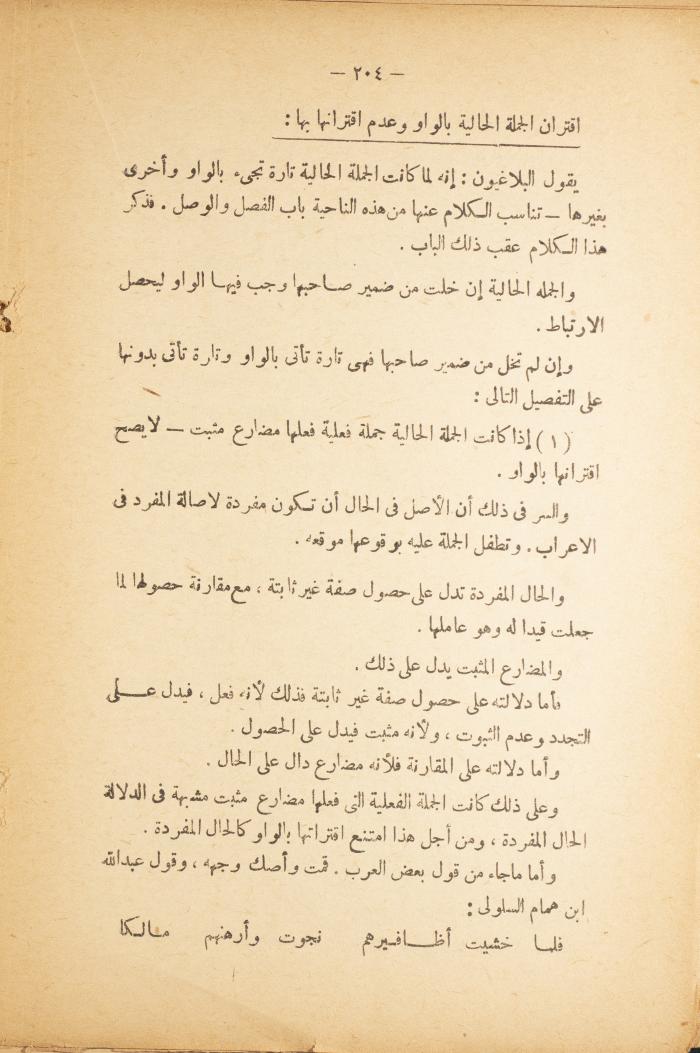 — ٢٠٤ —
اقتران الجملة الحالية بالواو وعدم اقترانها بها :
يقول البلاغيون : إنه لما كانت الجملة الحالية تارة تجىء بالواو وأخرى
بغيرها — تناسب الكلام عنها من هذه الناحية باب الفصل والوصل . فذكر
هذا الكلام عقب ذلك الباب .
والجمله الحالية إن خلت من ضمير صاحبها وجب فيها الواو ليحصل
الارتباط .
وإن لم تخل من ضمير صاحبها فهى تارة تأتى بالواو وتارة تأتى بدونها
على التفصيل التالى :
( ١ ) إذا كانت الجملة الحالية جملة فعلية فعلها مضارع مثبت — لا يصح
اقترانها بالواو .
والسر فى ذلك أن الأصل فى الحال أن تكون مفردة لاصالة المفرد فى
الاعراب . وتطفل الجملة عليه بوقوعها موقعه .
والحال المفردة تدل على حصول صفة غير ثابتة ، مع مقارنة حصولها لما
جعلت قيدا له وهو عاملها .
والمضارع المثبت يدل على ذلك .
فأما دلالته على حصول صفة غير ثابتة فذلك لأنه فعل ، فيدل عـلى
التجدد وعدم الثبوت ، ولأنه مثبت فيدل على الحصول .
وأما دلالته على المقارنة فلأنه مضارع دال على الحال .
وعلى ذلك كانت الجملة الفعلية التى فعلها مضارع مثبت مشبهة فى الدلالة
الحال المفردة ، ومن أجل هذا امتنع اقترانها بالواو كالحال المفردة .
وأما ماجاء من قول بعض العرب . قمت وأصك وجهه ، وقول عبدالله
ابن همام السلولى :
فلما خشيت أظافيرهم نجوت وأرهنهم مالكا